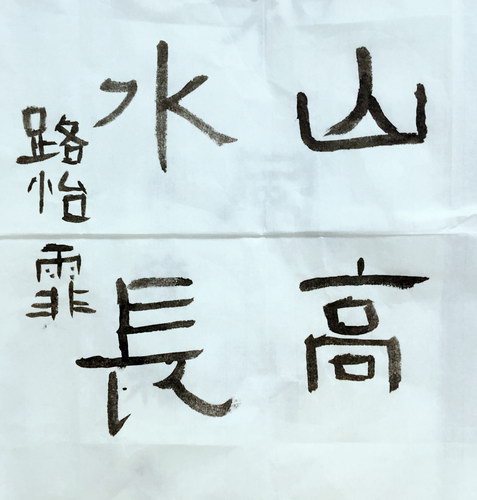 山高
水長
路怡霏